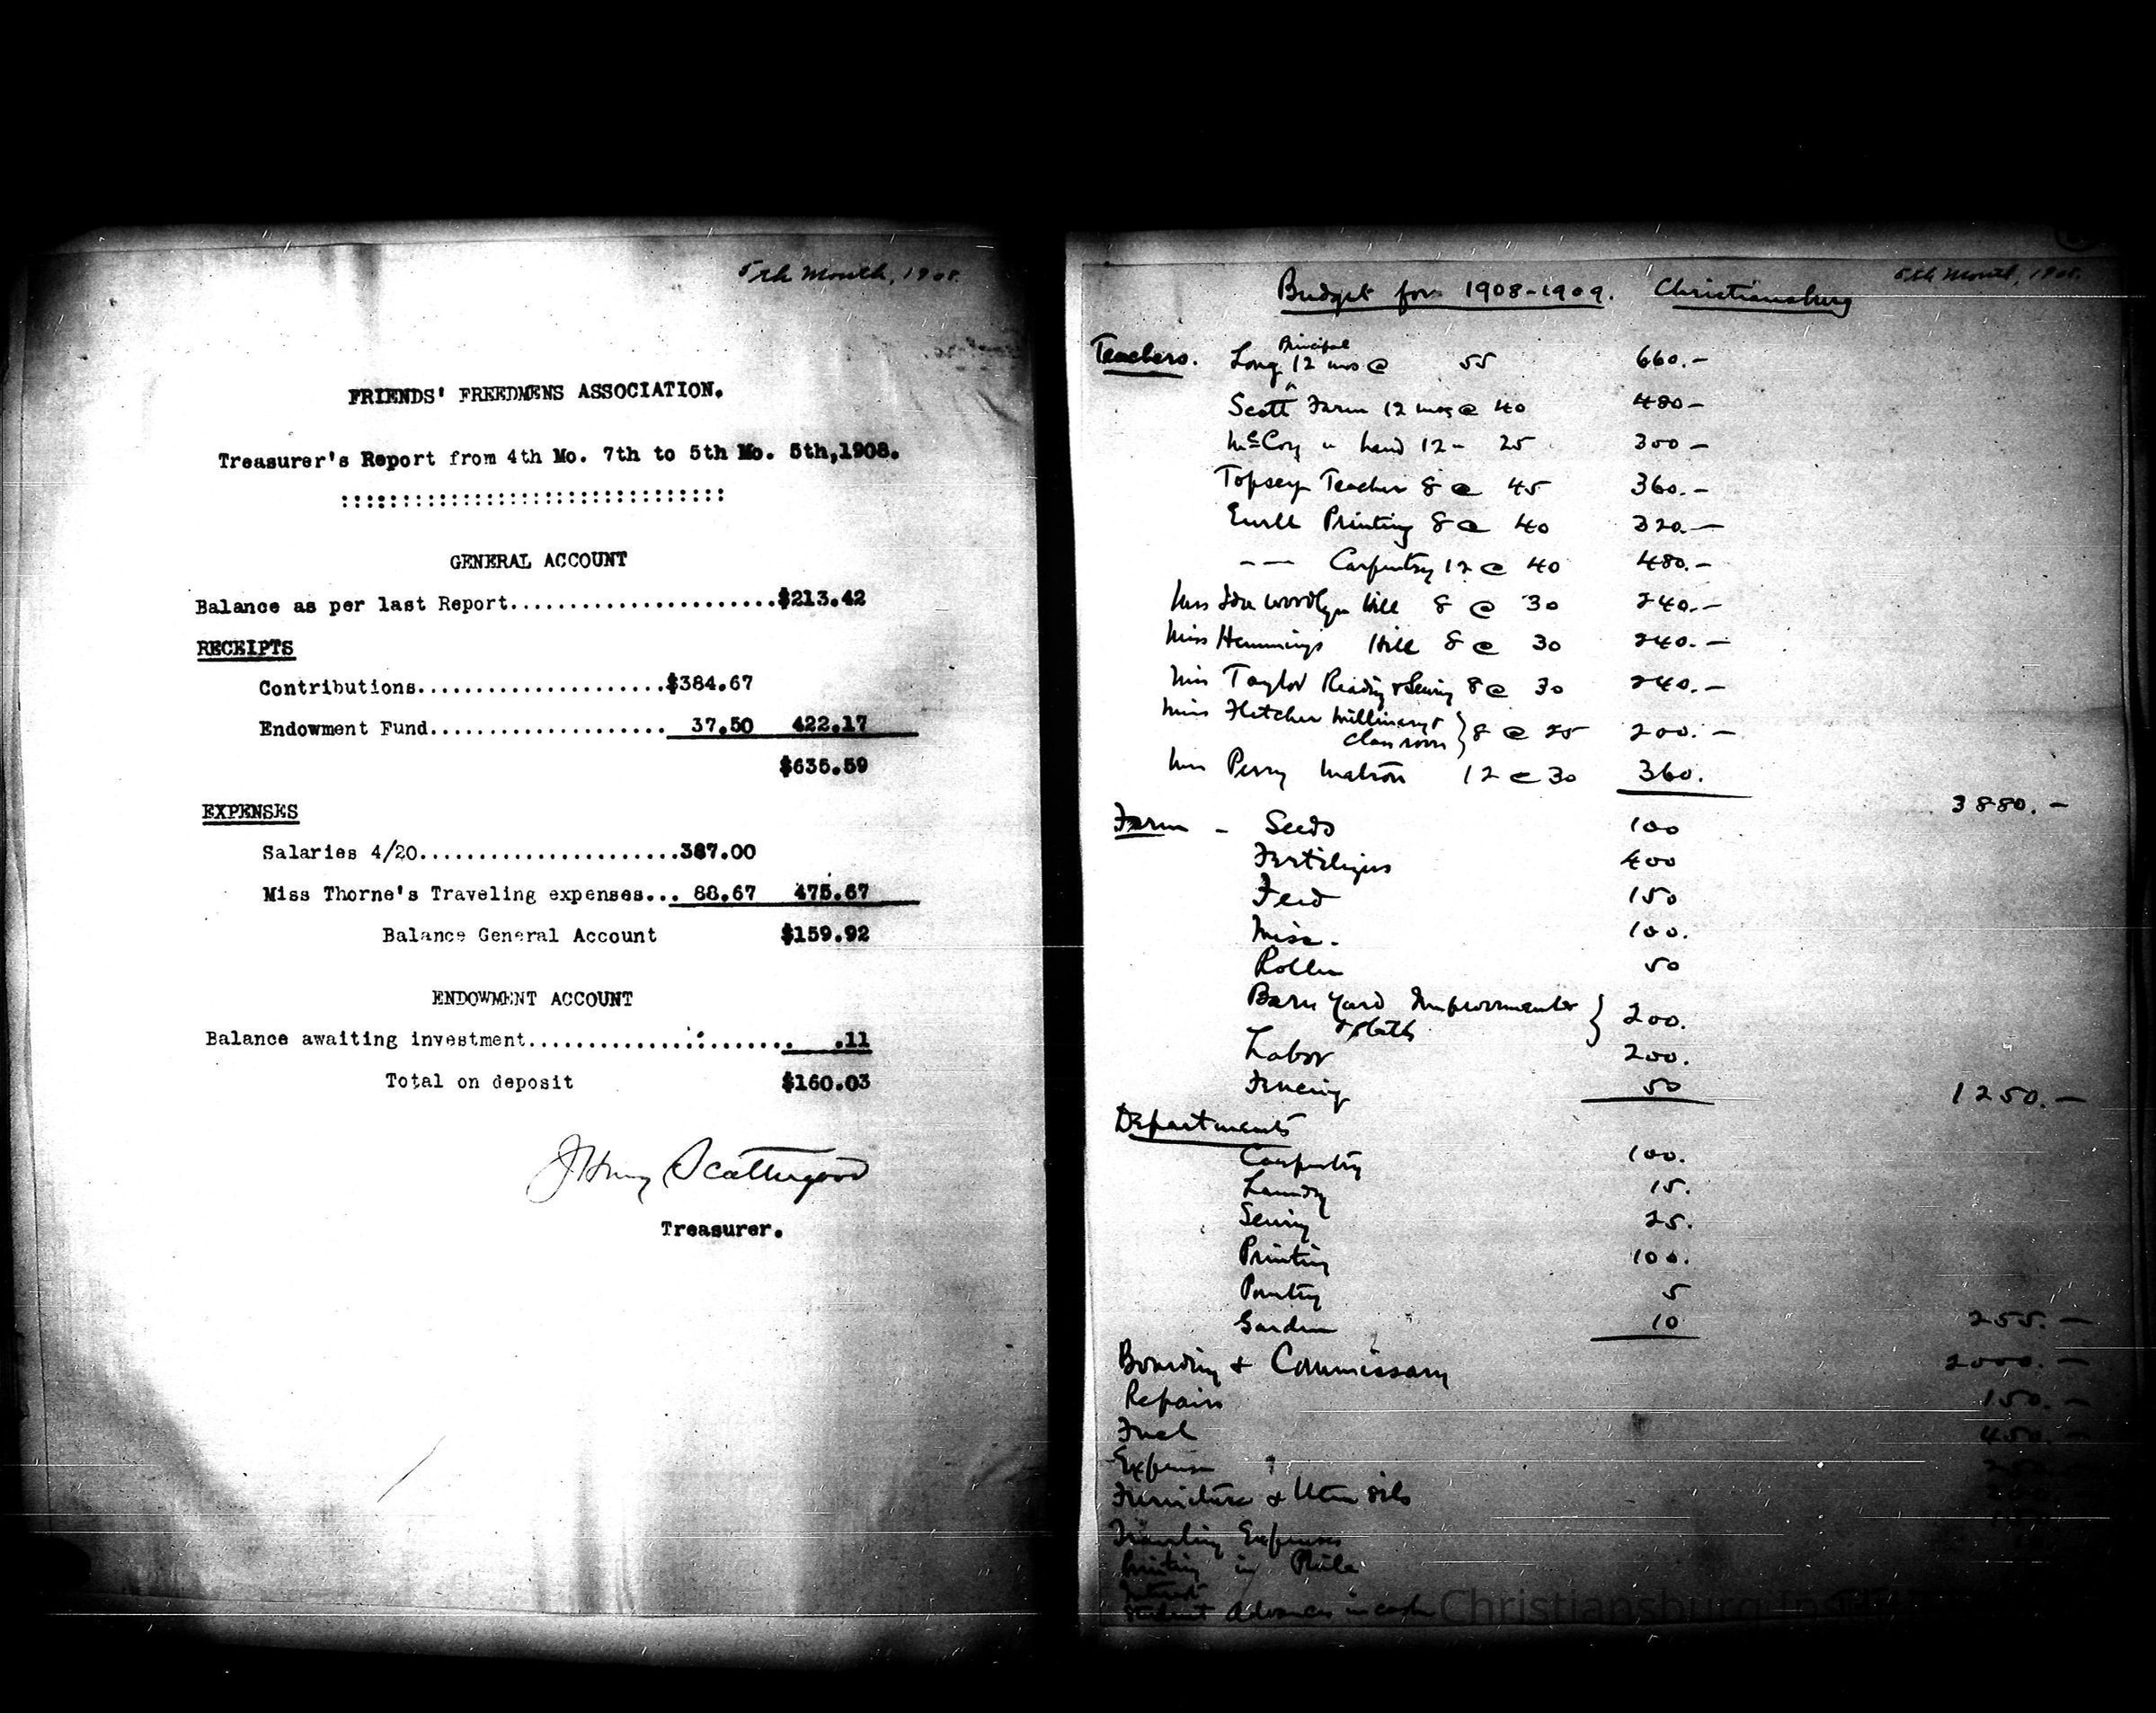 5th Month, 1908.
FRIENDS' FREEDMENS ASSOCIATION.
Treasurer's Report from 4th Mo. 7th to 5th Mo. 5th,1908.
::::::::::::::::::::::::::::::::
GENERAL ACCOUNT
Balance as per last Report.......................$213.42
RECEIPTS
Contributions.....................$384.67
Endowment Fund.................... 37.50 422.17
$635.59
EXPENSES
Salaries 4/20......................387.00
Miss Thorne's Traveling expenses... 88.67 475.67
Balance General Account $159.92
ENDOWMENT ACCOUNT
Balance awaiting investment....................... .11
Total on deposit $160.03
J Henry Scattergood
Treasurer.
5th Month, 1908.
Budget for 1908-1909. Christiansburg
Teachers. Long Principal 12 mos @ 55 660.-
Scott Farm 12 mos @ 40 480-
McCoy " hand 12 - 25 300-
Topsey Teacher 8 @ 45 360.-
Ewell Printing 8 @ 40 320.-
-- Carpentry 12 @ 40 480.-
Miss Ida Hill 8 @ 30 240.-
Miss Hemmings Hill 8 @ 30 240.-
Miss Taylor Reading & Sewing 8 @ 30 240.-
Miss Fletcher Millinery & class room } 8 @ 25 200.-
Miss Perry Matron 12 @ 30 360.
3880.-
Farm - Seeds 100
Fertilizers 400
Feed 150
Misc. 100.
Roller 50
Barn Yard Improvements } 200.
Labor 200.
Fencing 50 1250.-
Departments
Carpentry 100.
Laundry 15.
Sewing 25.
Printing 100.
Poultry 5
Garden 10 255.-
Boarding & Commissary 2000.-
Repairs 150.-
Fuel 450.-
Expense
Furniture & Utensils
Traveling Expenses
Printing in Phila
Interest
Student Advances in cash
Christiansburg